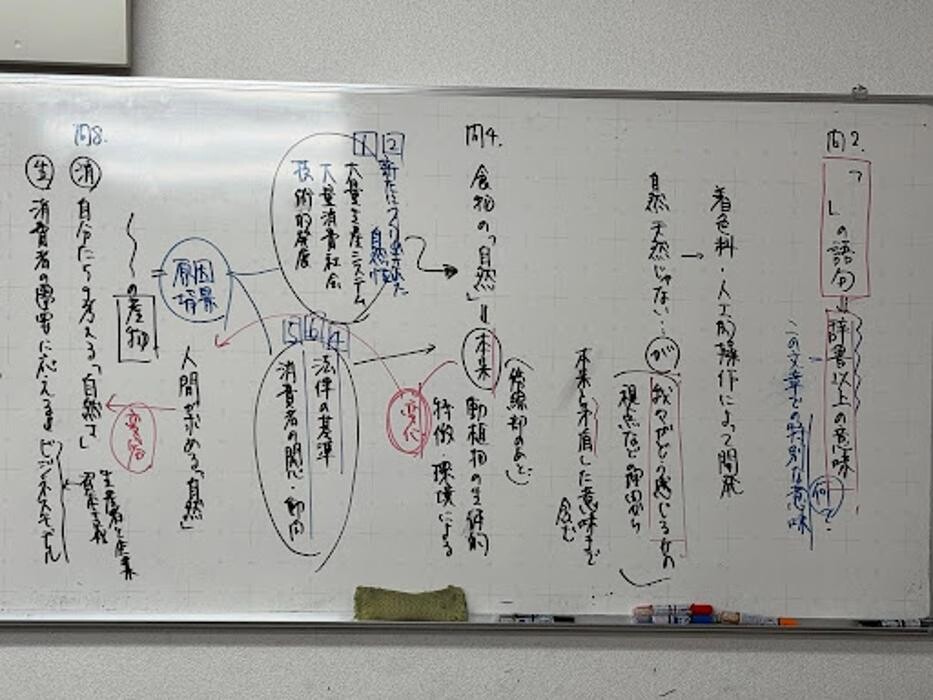 問2.
「 」の語句
＝
辞書以上の意味
何で
この文章での特別な意味
着色料・人工的操作によって開発
→
自然 天然じゃない…が
我々がどう感じるかの
視点など の理由から
本来と矛盾した意味まで
含む
問4.
食物の「自然」＝本来
(傍線部のあと)
動植物の生体的
特徴・環境による
変化
1 2
新たにつくり出された
自然性
大量生産システム
大量消費社会
技術的発展
5 6 4
法律の基準
消費者の関心・動向
原因
背景
＝
～の産物
人間が求める「自然」
変容
問8.
消 自分たちの考える「自然さ」
生産者と生業
生 消費者の需要に応える
ビジネスモデル